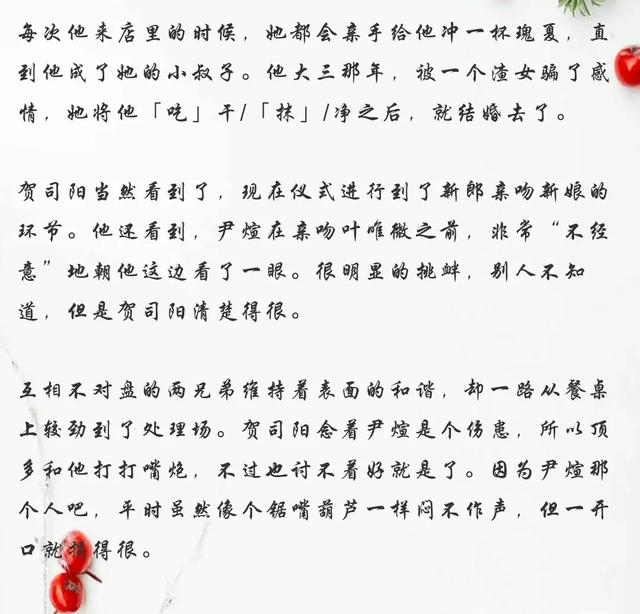 每次他来店里的时候，她都会亲手给他冲一杯瑰夏，直
到他成了她的小叔子。他大三那年，被一个渣女骗了感
情，她将他「吃」干/「抹」/净之后，就结婚去了。
贺司阳当然看到了，现在仪式进行到了新郎亲吻新娘的
环节。他还看到，尹煊在亲吻叶唯微之前，非常“不经
意”地朝他这边看了一眼。很明显的挑衅，别人不知
道，但是贺司阳清楚得很。
互相不对盘的两兄弟维持着表面的和谐，却一路从餐桌
上较劲到了处理场。贺司阳念着尹煊是个伤患，所以顶
多和他打打嘴炮，不过也讨不着好就是了。因为尹煊那
个人吧，平时虽然像个锯嘴葫芦一样闷不作声，但一开
口就得很。